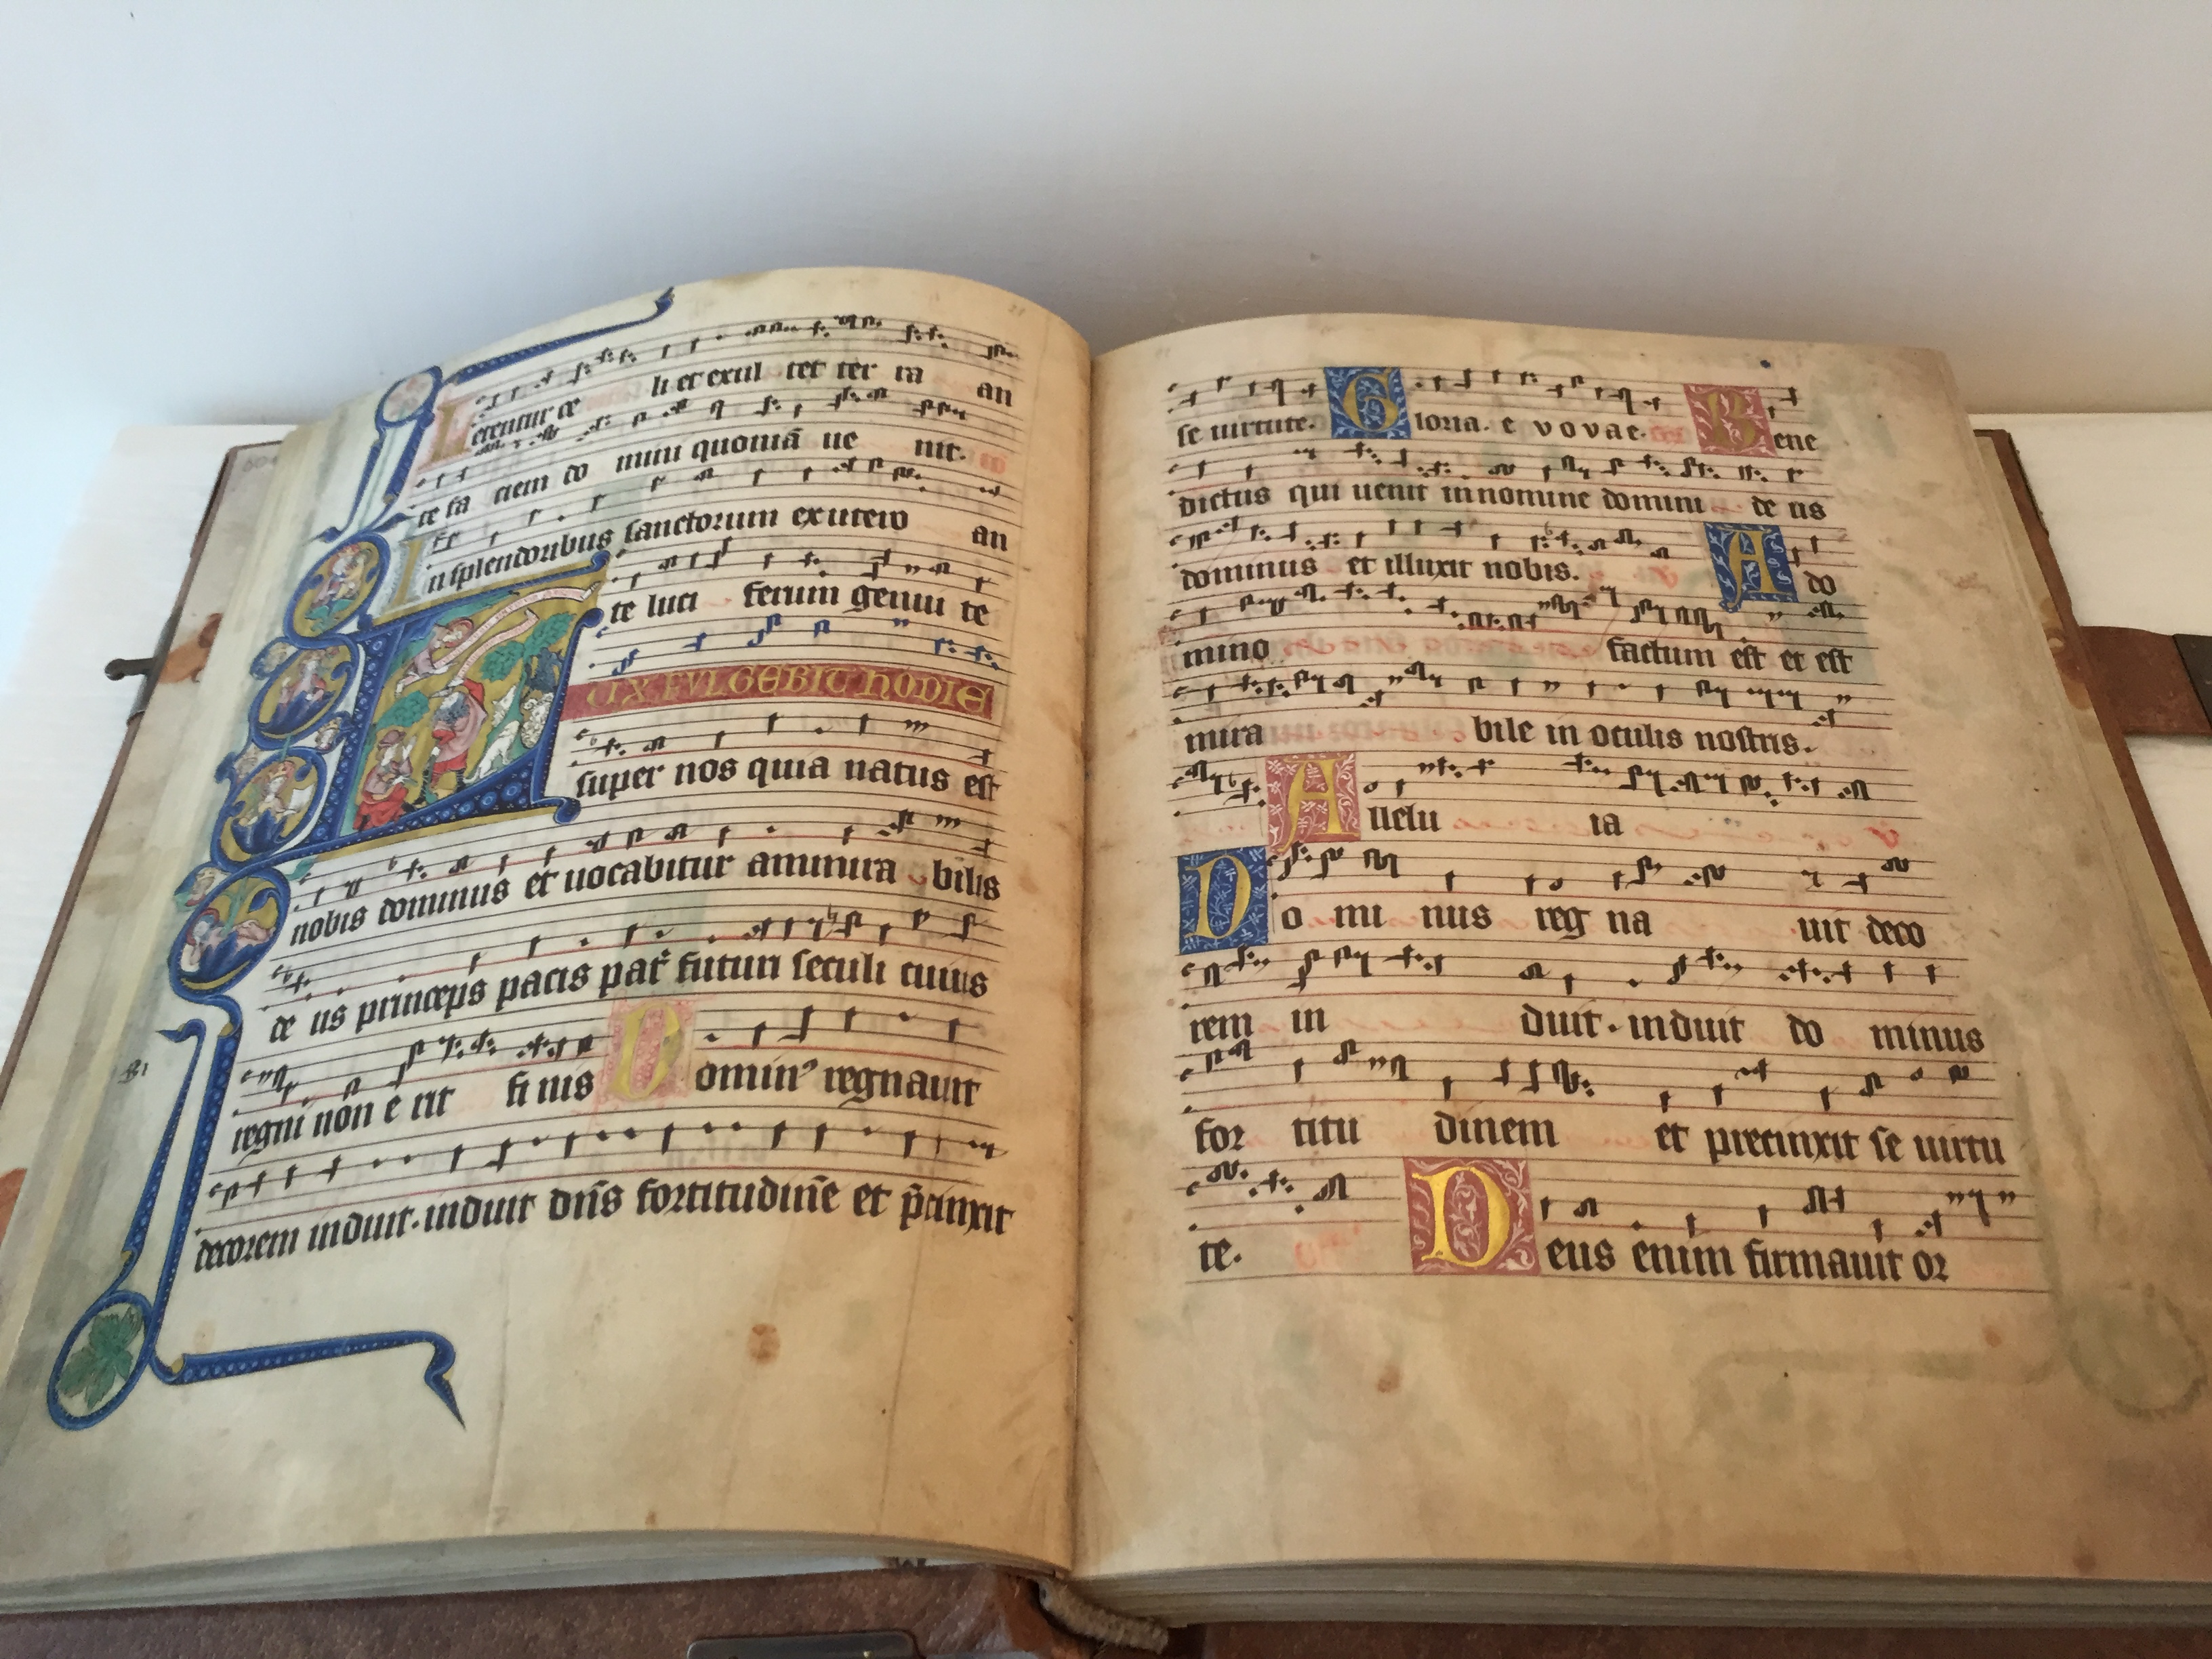 Letentur ce li et exul tet ter ra an
te fa ciem do mini quoniā ue nit.
In splendoribus sanctorum ex utero an
te luci ferum genui te
LUX FVLGEBIT HODIE
super nos quia natus est
nobis dominus et uocabitur ammira bilis
de us princeps pacis pat̄ futuri seculi cuius
regni non e rit fi nis Dominꝰ regnauit
decorem induit. induit dn̄s fortitudinē et p̄cinxit
se uirtute. Gloria. e v o v a e. Bene
dictus qui uenit in nomine domini de us
dominus et illuxit nobis. A do
mino factum est et est
mira bile in oculis nostris.
Allelu ia
Do mi nus reg na uit deco
rem in duit. induit do minus
for titu dinem et precinxit se uirtu
te. Deus enim firmauit or